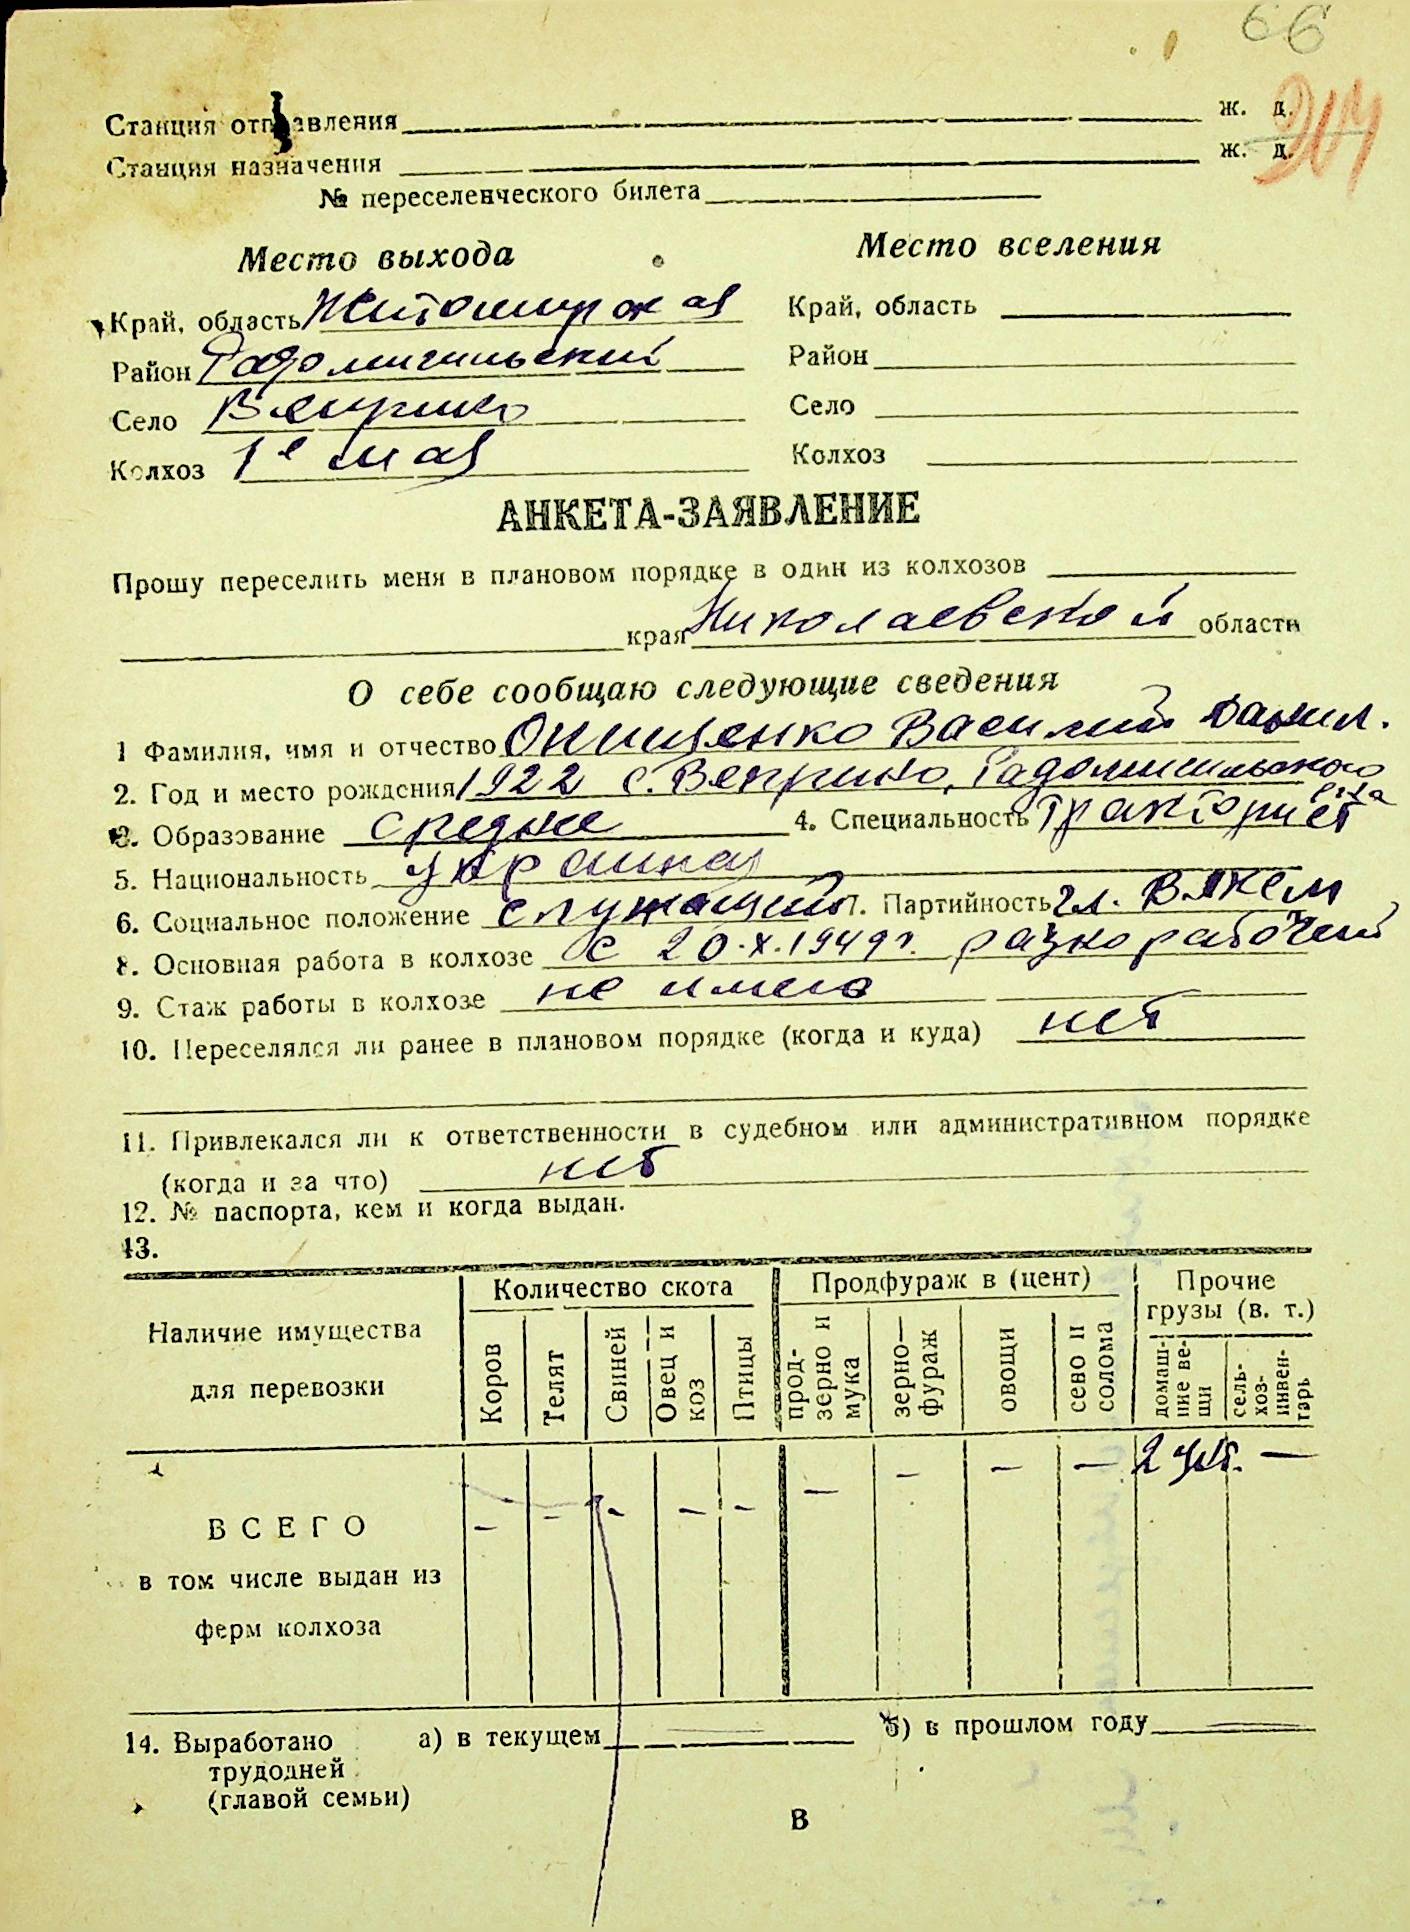 66
204
Станция отправления ж. д.
Станция назначения ж. д.
№ переселенческого билета
Место выхода Место вселения
Край, область Житомирская Край, область
Район Радомишильский Район
Село Веприно Село
Колхоз 1е мая Колхоз
АНКЕТА-ЗАЯВЛЕНИЕ
Прошу переселить меня в плановом порядке в один из колхозов
края Николаевской области
О себе сообщаю следующие сведения
1 Фамилия, имя и отчество Онищенко Василий Данил.
2. Год и место рождения 1922 с. Веприно, Радомишильского р-на
3. Образование средне 4. Специальность тракторист
5. Национальность украинец
6. Социальное положение служащий 7. Партийность чл. ВЛКСМ
8. Основная работа в колхозе с 20.X.1949 г. разнорабочий
9. Стаж работы в колхозе не имею
10. Переселялся ли ранее в плановом порядке (когда и куда) нет
11. Привлекался ли к ответственности в судебном или административном порядке
(когда и за что) нет
12. № паспорта, кем и когда выдан.
13.
Наличие имущества для перевозки
Количество скота Продфураж в (цент) Прочие грузы (в. т.)
Коров Телят Свиней Овец и коз Птицы прод-зерно и мука зерно—фураж овощи сено и солома домаш-ние ве-щи сель-хоз-инвен-тарь
ВСЕГО - - - - - - - - - 2 —
в том числе выдан из
ферм колхоза
14. Выработано а) в текущем б) в прошлом году
трудодней
(главой семьи)
В